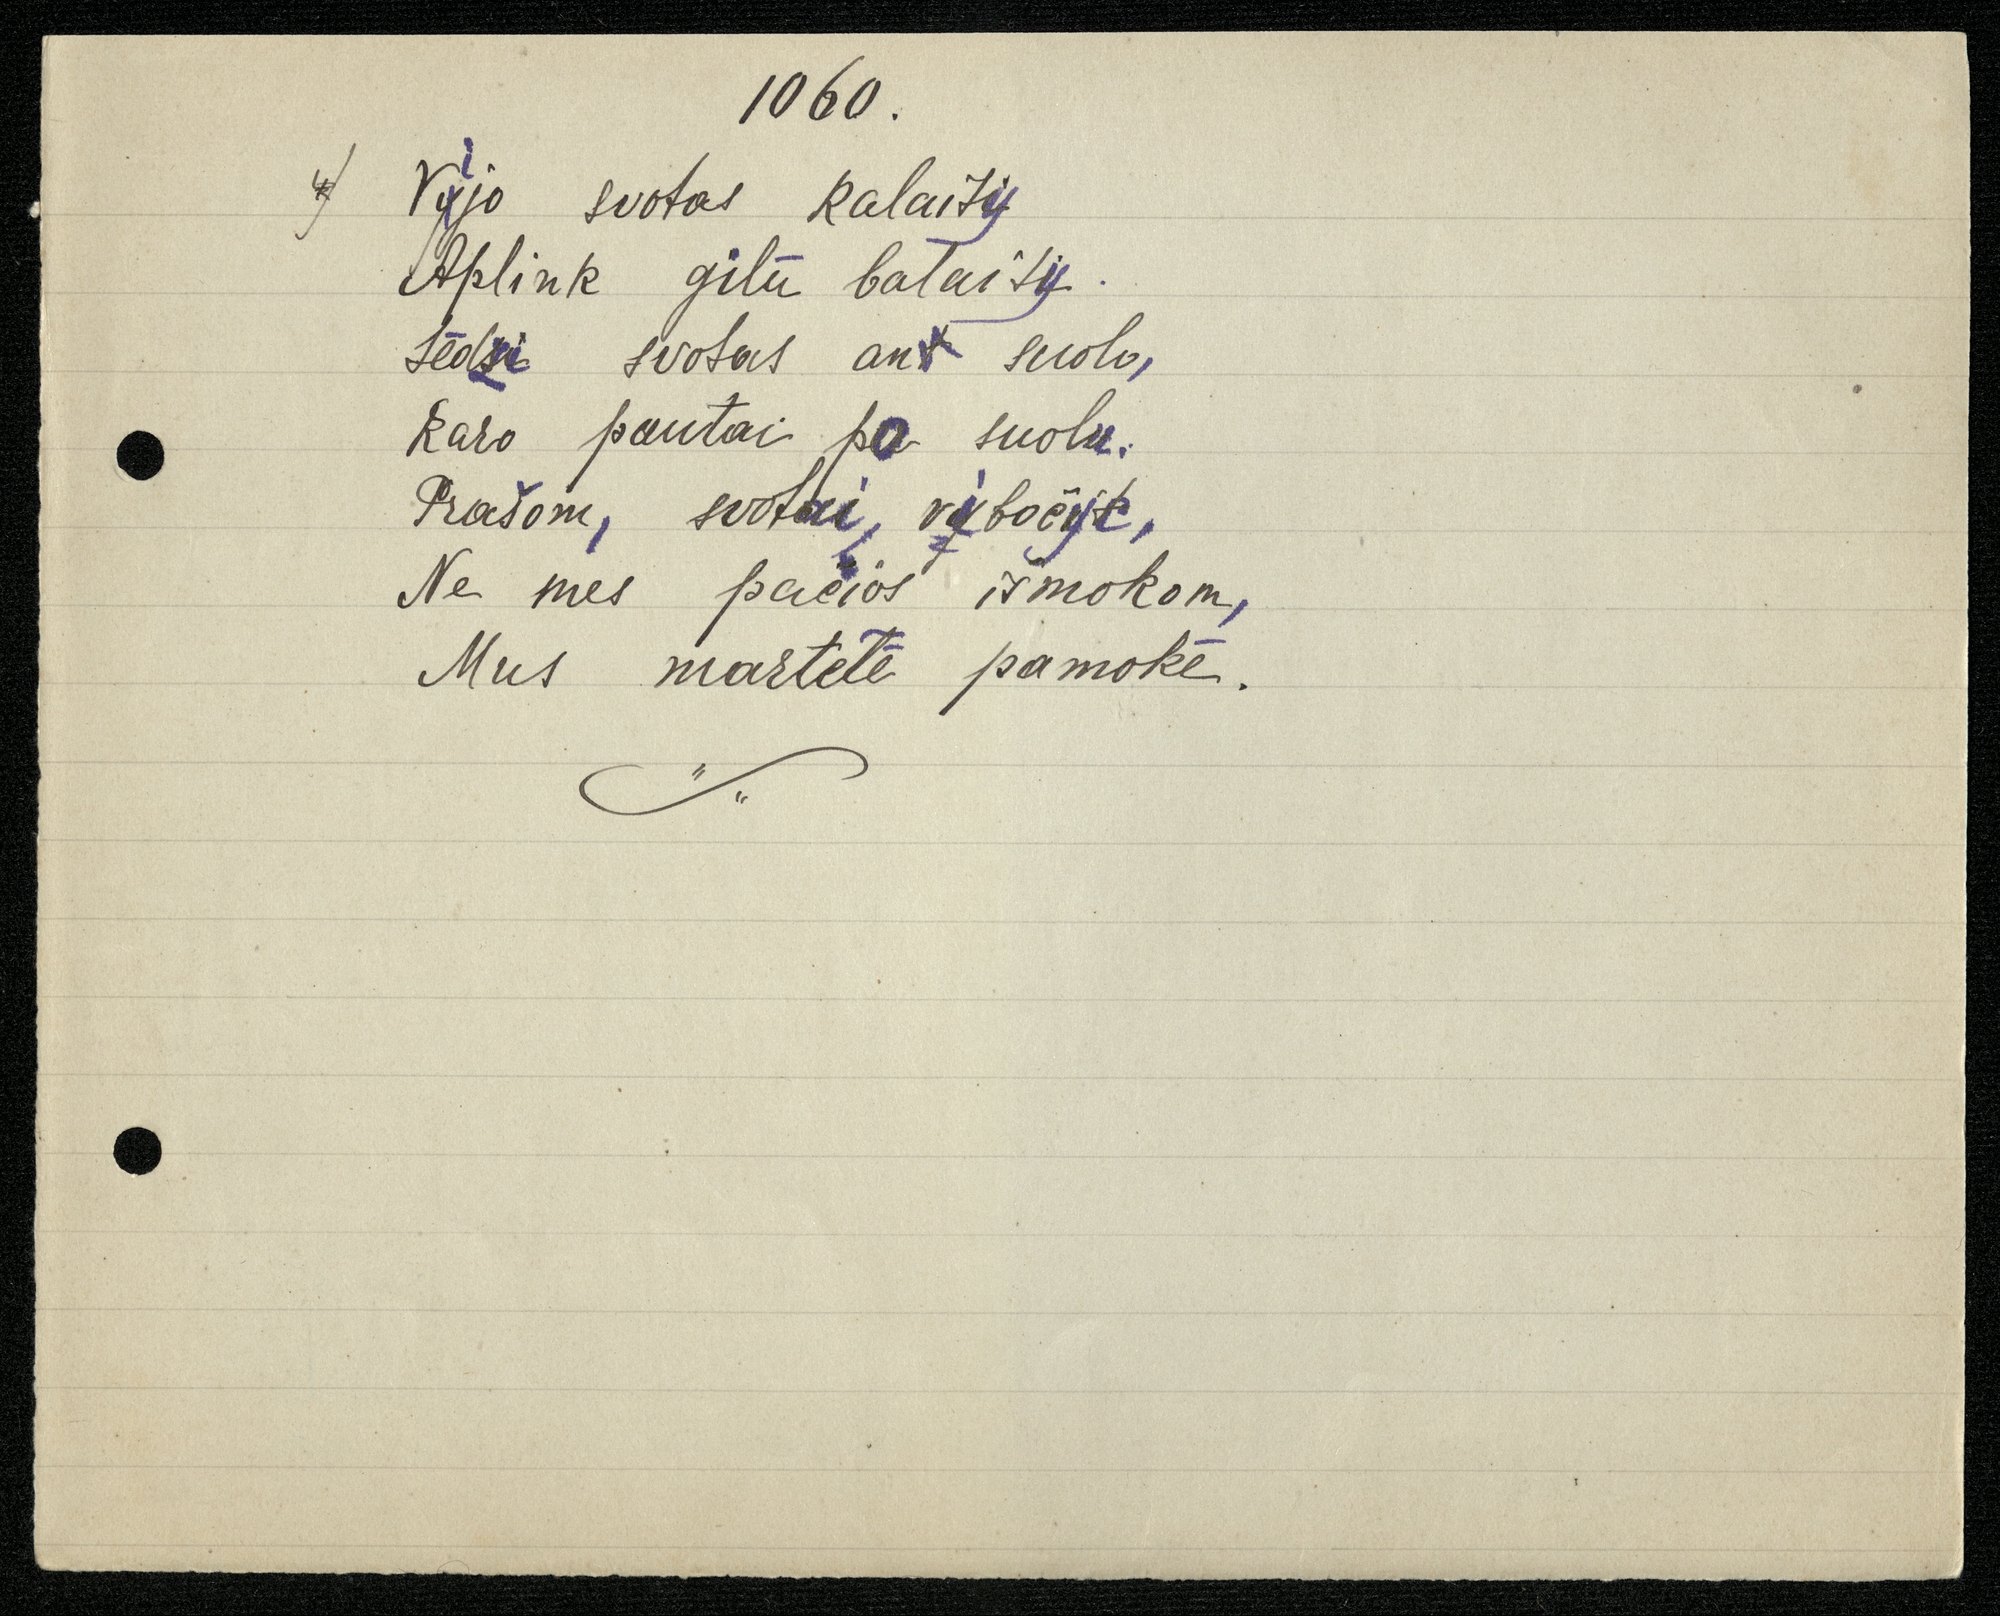 1060.
4) Vijo svotas kalaišį
Aplink gilū balaišį.
Sėdzi svotas an suolo,
Karo pautai po suolu.
Prašom, svotai, vibočyt,
Ne mes pačios išmokom,
Mus martelė pamokė.